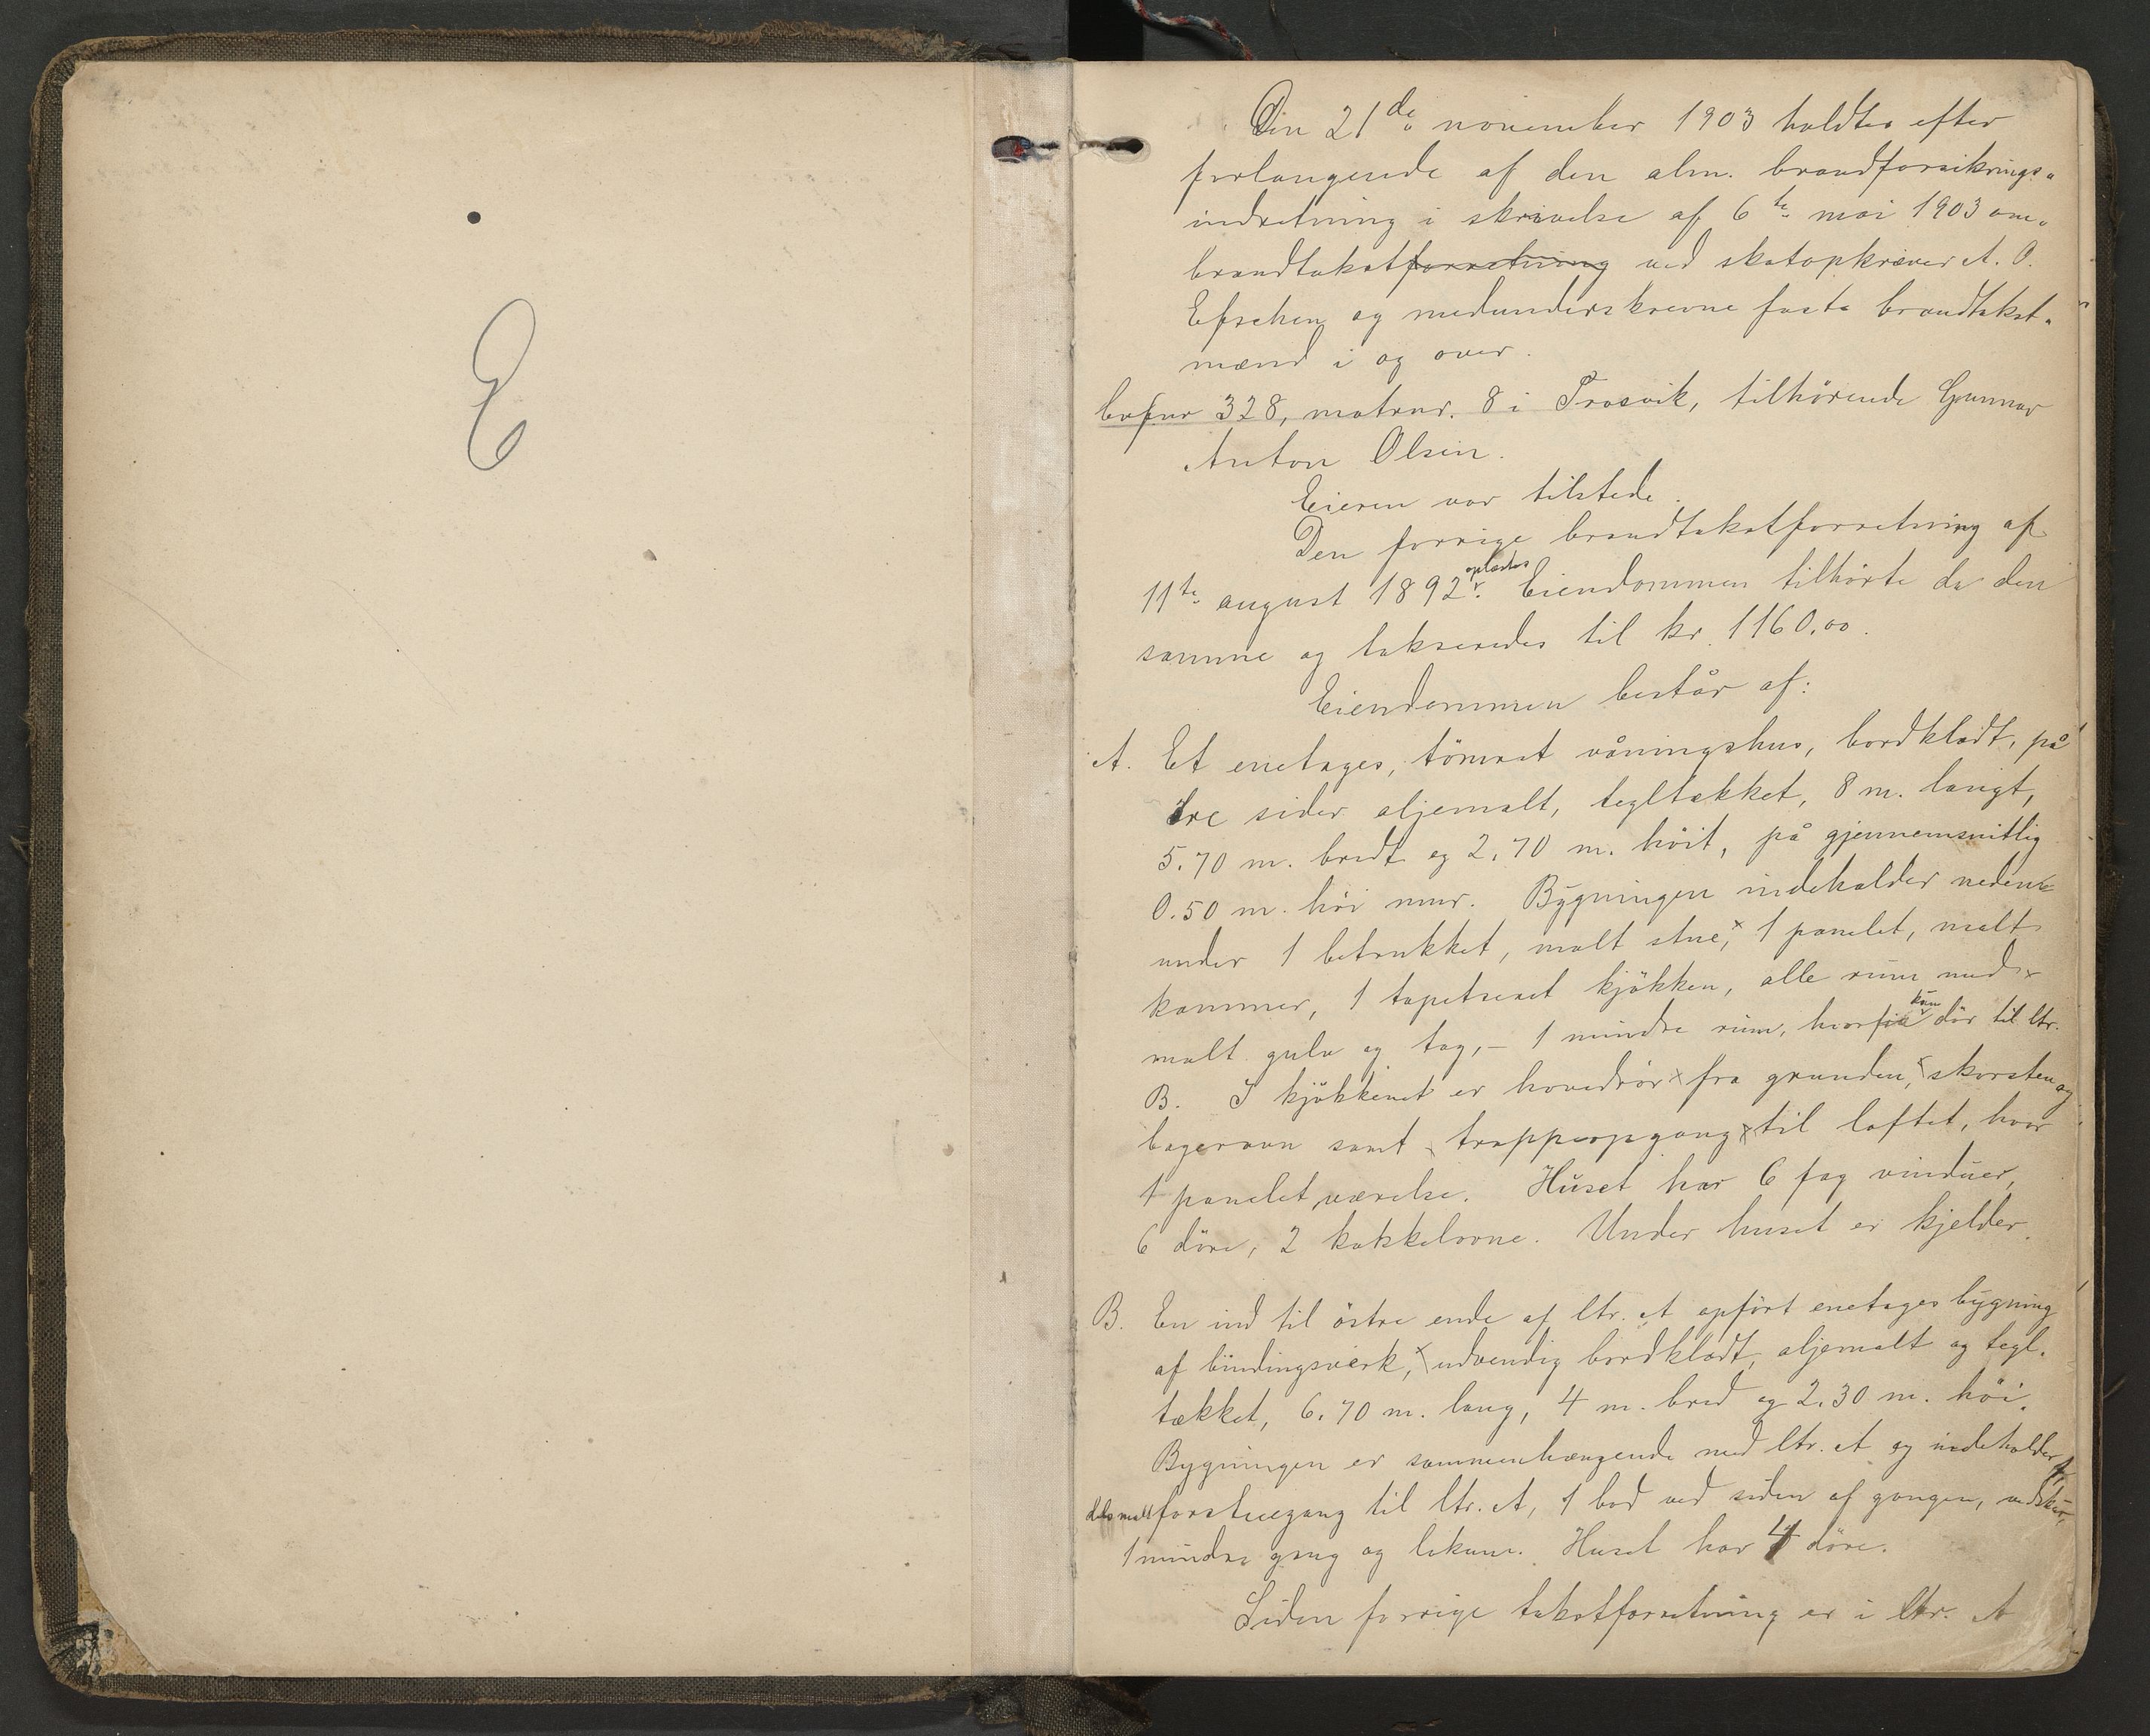 E
Den 21de november 1903 holdtes efter
forlangende af den alm. brandforsikrings-
indretning i skrivelse af 6te mai 1903 om-
brandtakstforretning ved skatopkræver A. O.
og medunderskrevne faste brandtakst-
mænd i og over.
Brfnr 328, matrnr. 8 i Trosvik, tilhörende Gunnar
Anton Olsen.
Eieren var tilstede.
Den forrige brandtakstforretning af
11te august 1892 oplæstes. Eiendommen tilhörte da den
samme og takseredes til kr. 1160.00.
Eiendommen består af:
A. Et enetages, tömret våningshus, bordklædt, på
tre sider oljemalt, tegltækket, 8 m. langt,
5.70 m. bredt og 2.70 m. höit, på gjennemsnitlig
0.50 m. höi mur. Bygningen indeholder neden-
under 1 betrukket, malt stue, 1 panelet, malt
kammer, 1 tapetseret kjökken, alle rum med
malt gulv og tag, – 1 mindre rum, hvorfra kun dör til ltr.
B. I kjökkenet er hovedrör fra grunden, skorsten og
bagerovn samt trappeopgang til loftet, hvor
1 panelet værelse. Huset har 6 fag vinduer,
6 döre, 2 kakkelovne. Under huset er kjelder.
B. En ind til östre ende af ltr. A opfört enetages bygning
af bindingsverk, udvendig bordklædt, oljemalt og tegl-
tækket, 6.70 m. lang, 4 m. bred og 2.30 m. höi.
Bygningen er sammenhængende med ltr. A og indeholder 1,
dels malt forstuegang til ltr. A, 1 bod ved siden af gangen, vedskur,
1 mindre gang og lokum. Huset har 4 döre.
Siden forrige takstforretning er i ltr. A